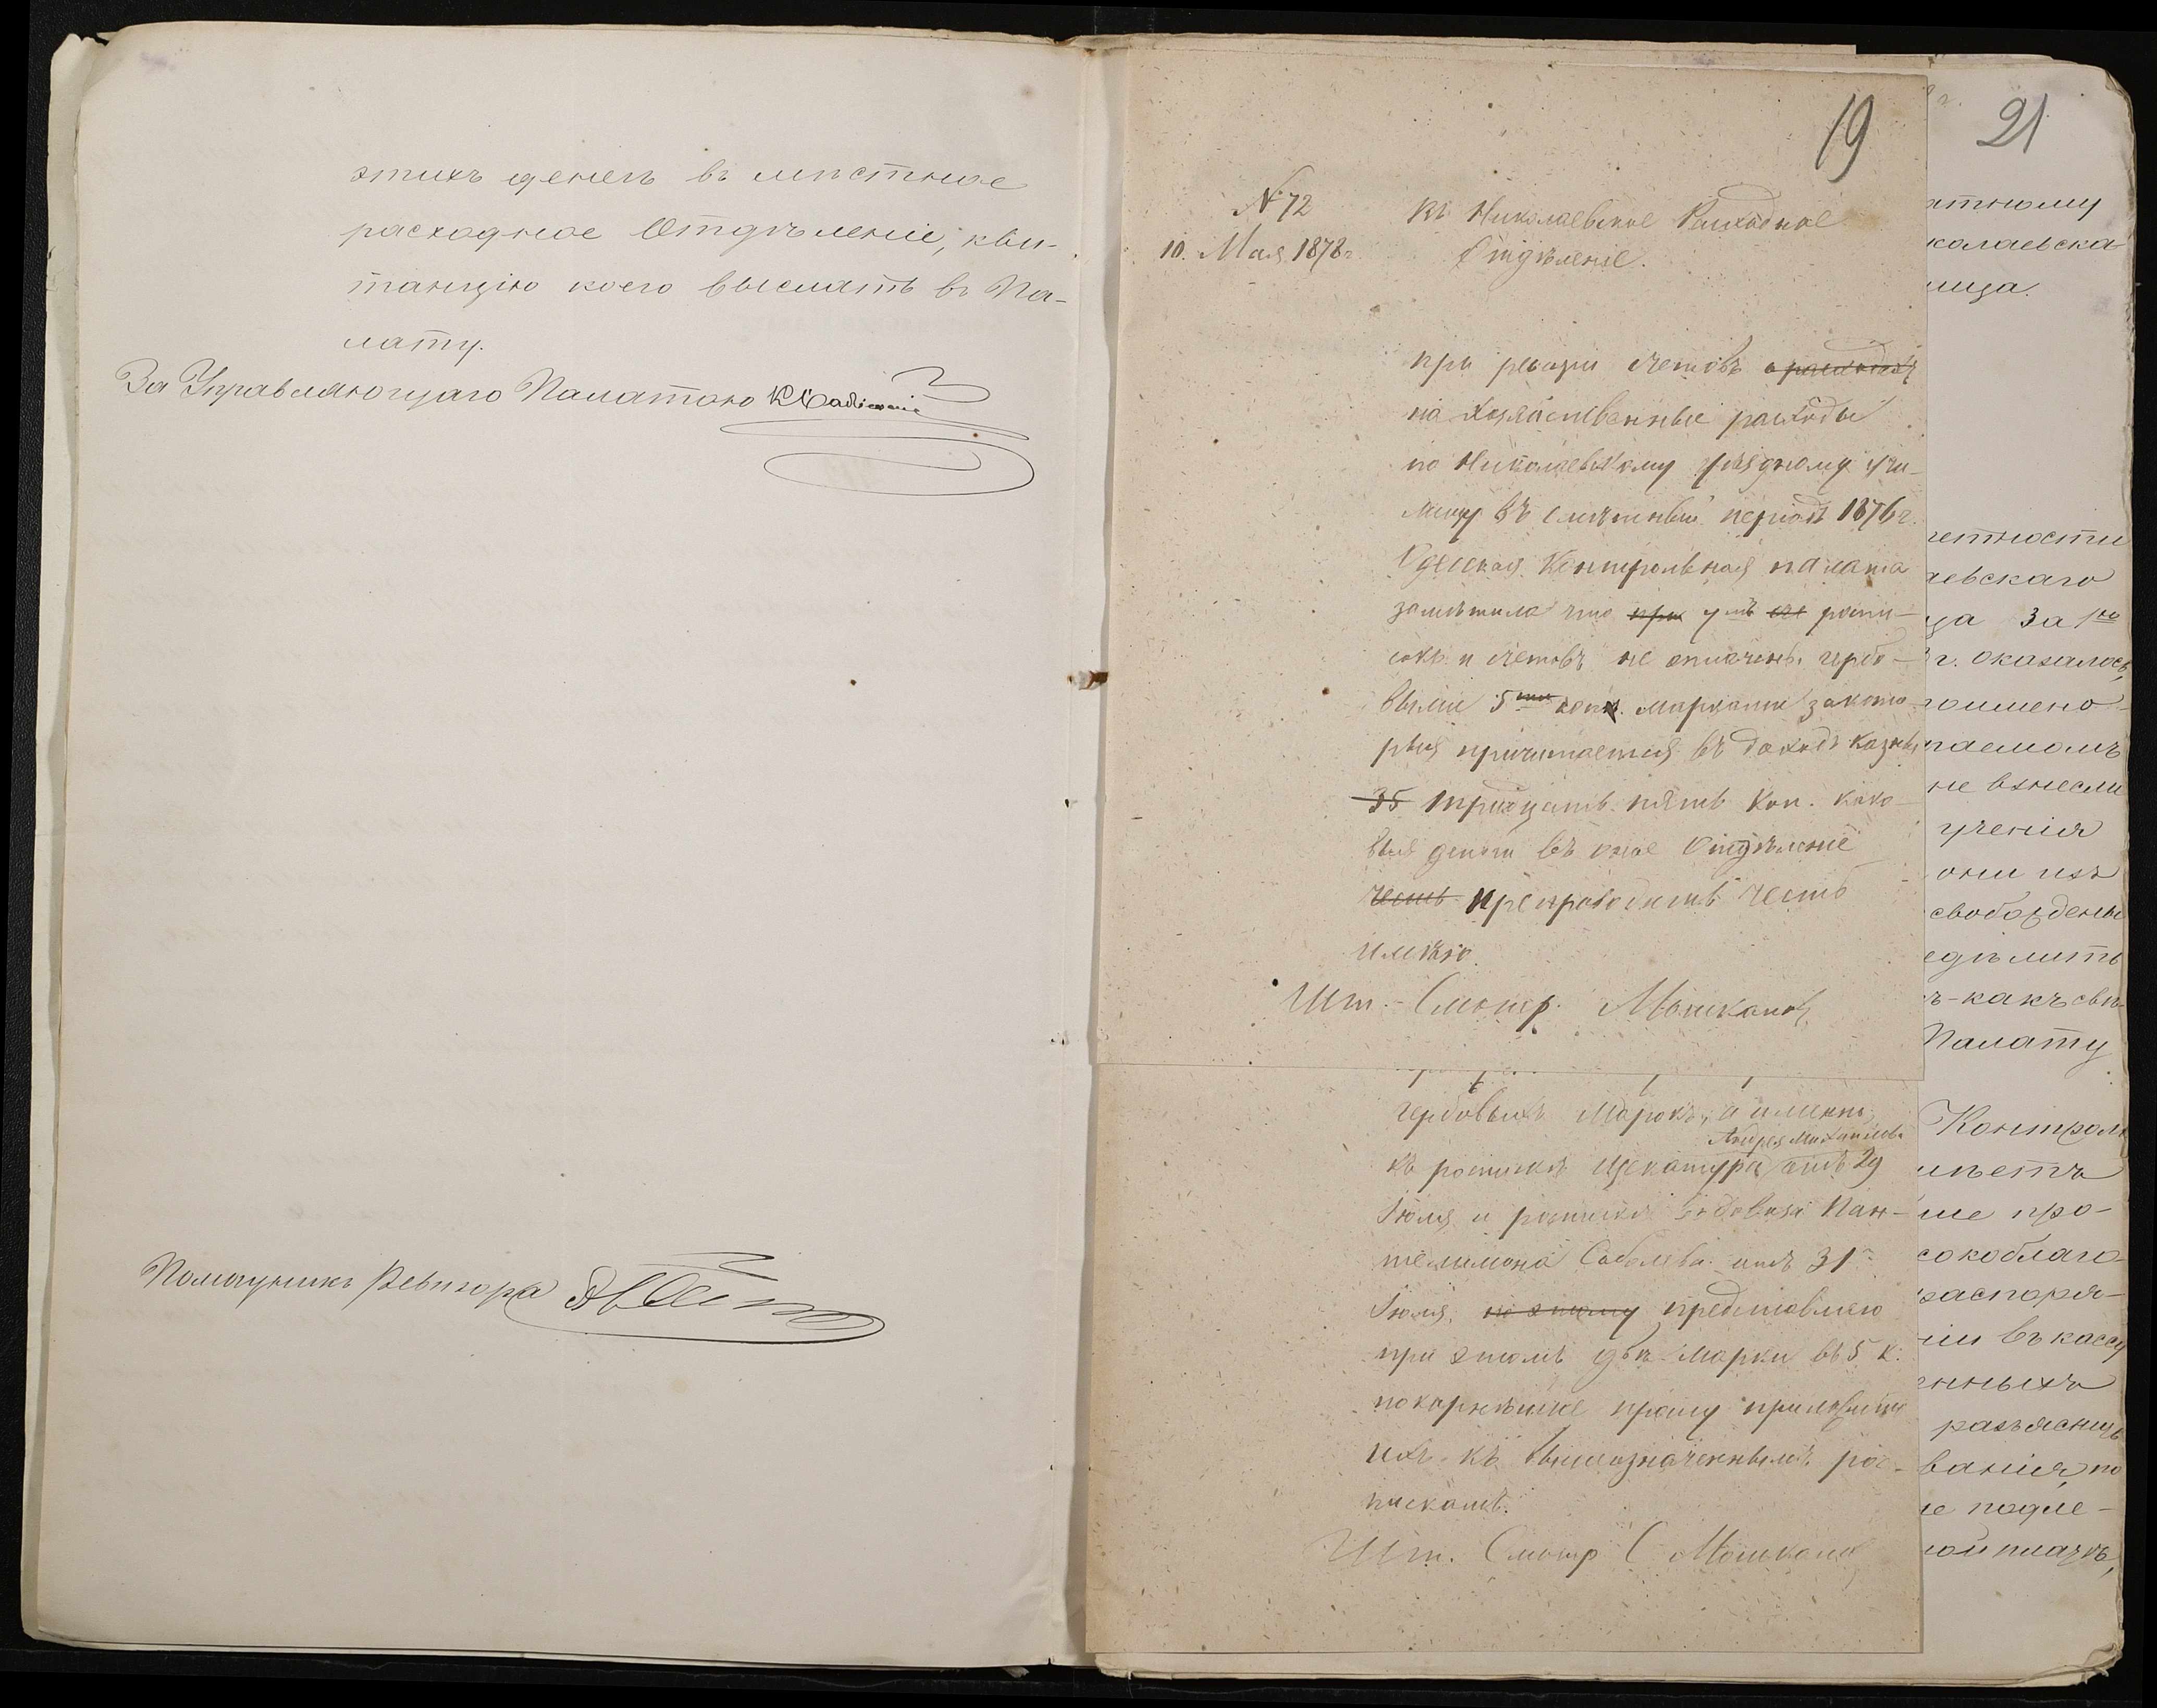 этихъ денегъ въ мѣстное
расходное Отдѣленіе, кви-
танцію коего выслать въ Па-
лату.
За Управляющаго Палатою
Помощникъ Ревизора
19
№ 72
10. Мая 1878 г.
Въ Николаевское Расходное
Отдѣленіе.
при ревизіи счетовъ о расходахъ
на хозяйственные расходы
по Николаевскому уѣздному учи-
лищу въ смѣтный періодъ 1876 г.
Одесская Контрольная палата
замѣтила что при роспи-
сокъ и счетовъ не оплачены гербо-
выми 5 коп. марками за кото
рыя причитается въ доходъ казны
35 тридцать пять коп. како-
выя деньги въ оное Отдѣленіе
честь препроводить честь
имѣю.
Шт. Смотр. Мышкано
гербовыхъ марокъ, а именно
Андрея Михайлова
къ роспискѣ щекатура отъ 29
Іюля и росписки Пан-
телимона Соболева отъ 31
Іюля, по этому представляю
при этомъ двѣ марки въ 5 к.
покорнѣйше прошу приложить
ихъ къ вышеозначеннымъ рос-
пискамъ.
Шт. Смотр С
21
атному
колаевска
лища.
четности
аевскаго
ща За 1ю
г. оказалось,
поимено-
маемомъ
не взнесли
ученія
они изъ
свобождены
едѣлить
ъ-какъ свѣ-
Палату
Контроль
имѣетъ
ше про-
сокоблаго-
распоря-
ніи въ кассу
нныхъ
разъяснить
ванія, по
не подле-
ной платѣ,